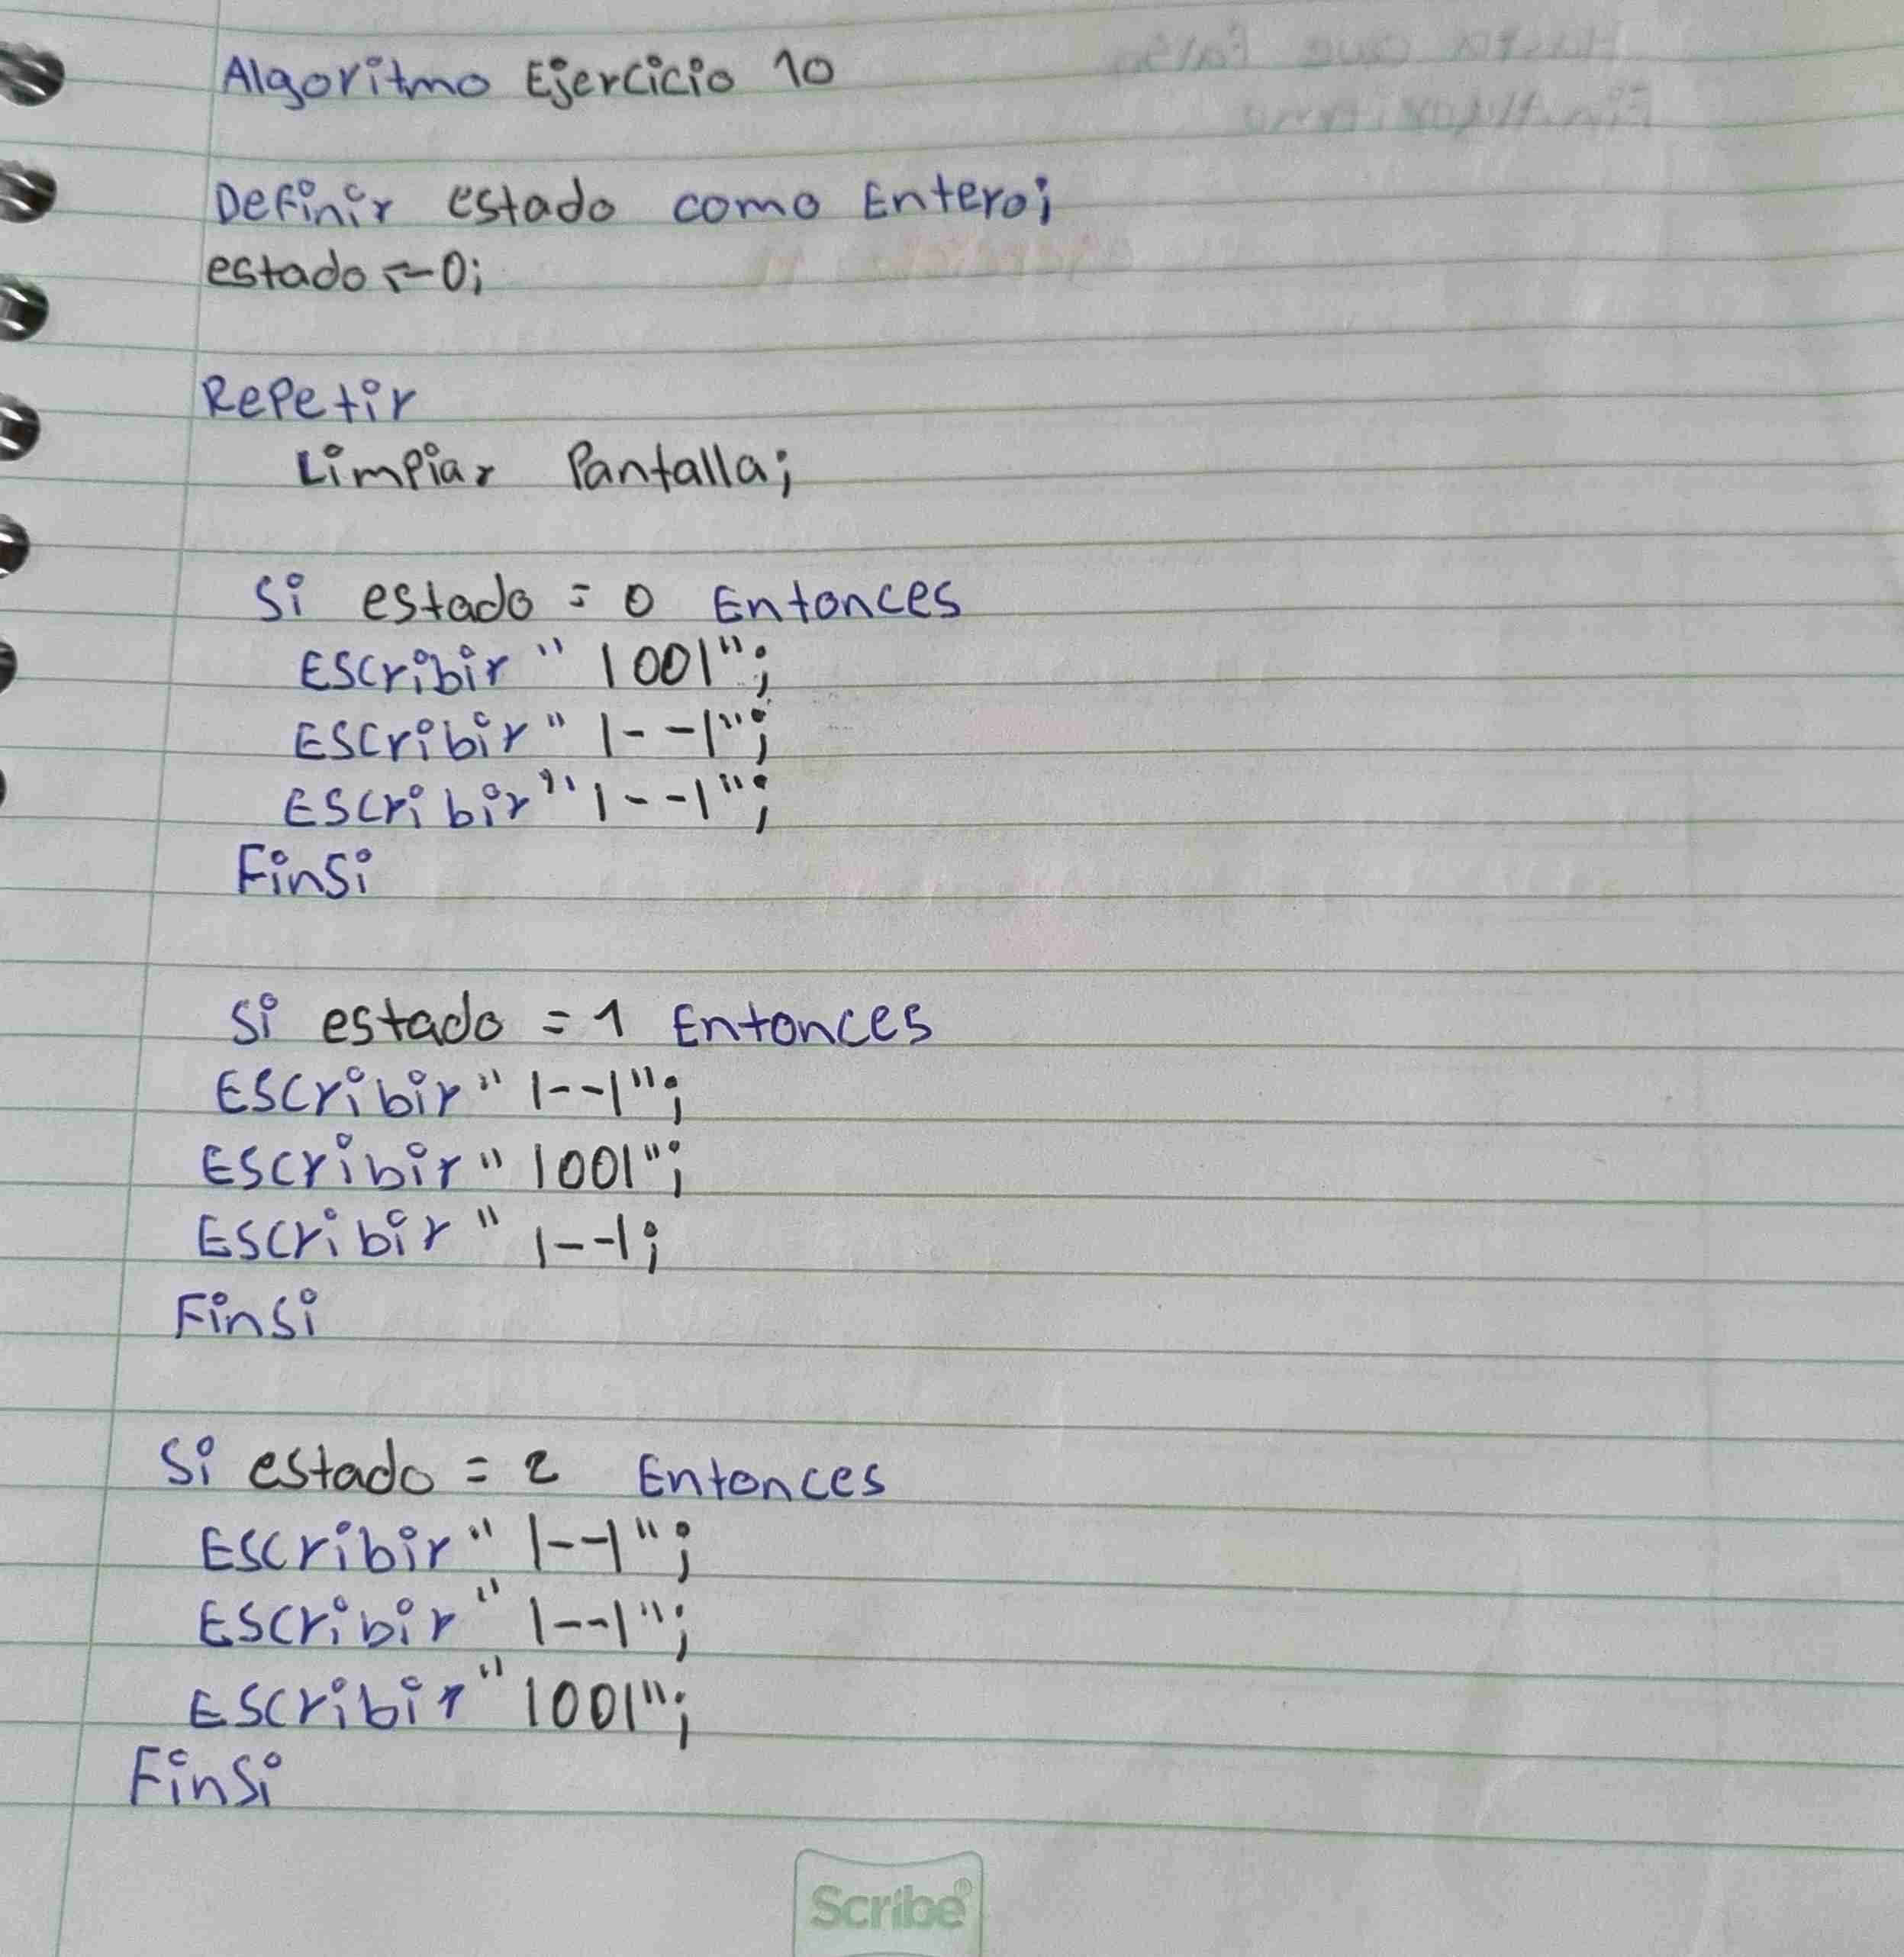 Algoritmo Ejercicio 10
Definir estado como Entero;
estado ← 0;
Repetir
Limpiar Pantalla;
Si estado = 0 Entonces
Escribir " |00|";
Escribir " |--|";
Escribir "|--|";
FinSi
Si estado = 1 Entonces
Escribir " |--|";
Escribir " |00|";
Escribir " |--|;
FinSi
Si estado = 2 Entonces
Escribir " |--|";
Escribir " |--|";
Escribir " |00|";
FinSi
Scribe®
Hasta que Falso
FinAlgoritmo